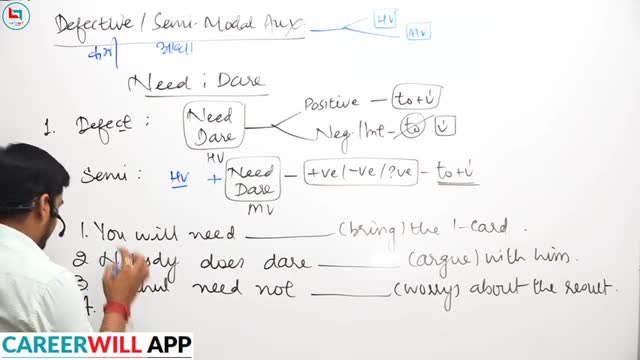 Defective / Semi-Modal Aux.
HV
MV
कम आधा
Need ; Dare
Positive - to+v'
1. Defect : Need Dare
HV
Neg./Int - to v'
Semi : HV + Need Dare - +ve/-ve/?ve - to+v'
MV
1. You will need ______ (bring) the I-card.
2 dy does dare ______ (argue) with him.
3 need not ______ (worry) about the result.
4.
CAREERWILL APP